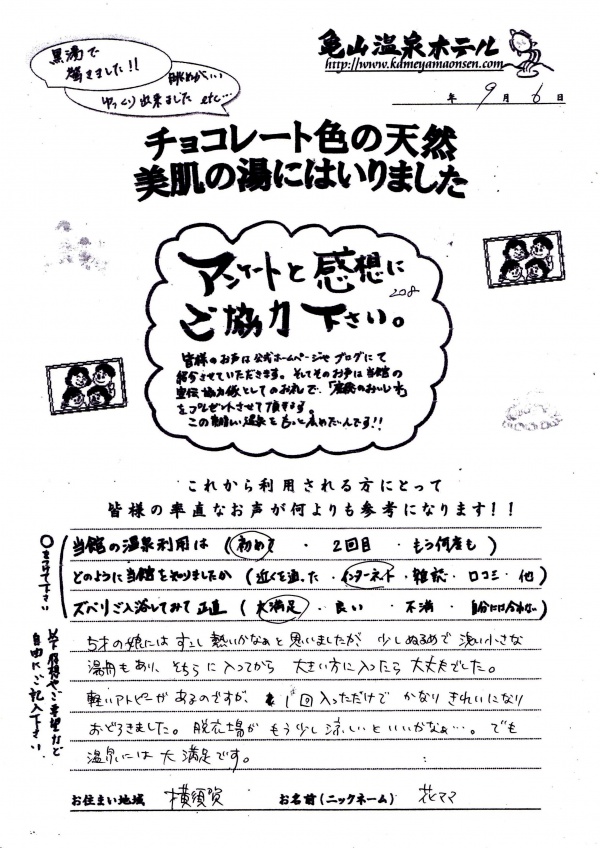 黒湯で
驚きました!!
眺めがいい
ゆっくり出来ました etc…
亀山温泉ホテル
http://www.kameyamaonsen.com
年 9月 6日
チョコレート色の天然
美肌の湯にはいりました
アンケートと感想に
208
ご協力下さい。
皆様のお声は公式ホームページやブログにて
紹介させていただきます。そしてそのお声は当館の
宣伝協力隊としてのお礼で、「農家のおいしい米」
をプレゼントさせて頂きます。
この素晴しい温泉をもっと広めたいんです!!
これから利用される方にとって
皆様の率直なお声が何よりも参考になります!!
○をつけて下さい
当館の温泉利用は ( 初めて ・ 2回目 ・ もう何度も )
どのように当館を知りましたか (近くを通った ・ インターネット ・ 雑誌 ・ 口コミ ・ 他)
ズバリご入浴してみて正直 ( 大満足 ・ 良い ・ 不満 ・ 自分には合わない )
以下感想やご希望など
自由にご記入下さい
5才の娘にはすこし熱いかなぁと思いましたが、少しぬるめで浅い小さな
湯舟もあり、そちらに入ってから 大きい方に入ったら大丈夫でした。
軽いアトピーがあるのですが、1回入っただけで かなりきれいになり
おどろきました。脱衣場が もう少し涼しいといいかなぁ…。でも
温泉には大満足です。
お住まい地域 横須賀 お名前(ニックネーム) 花ママ